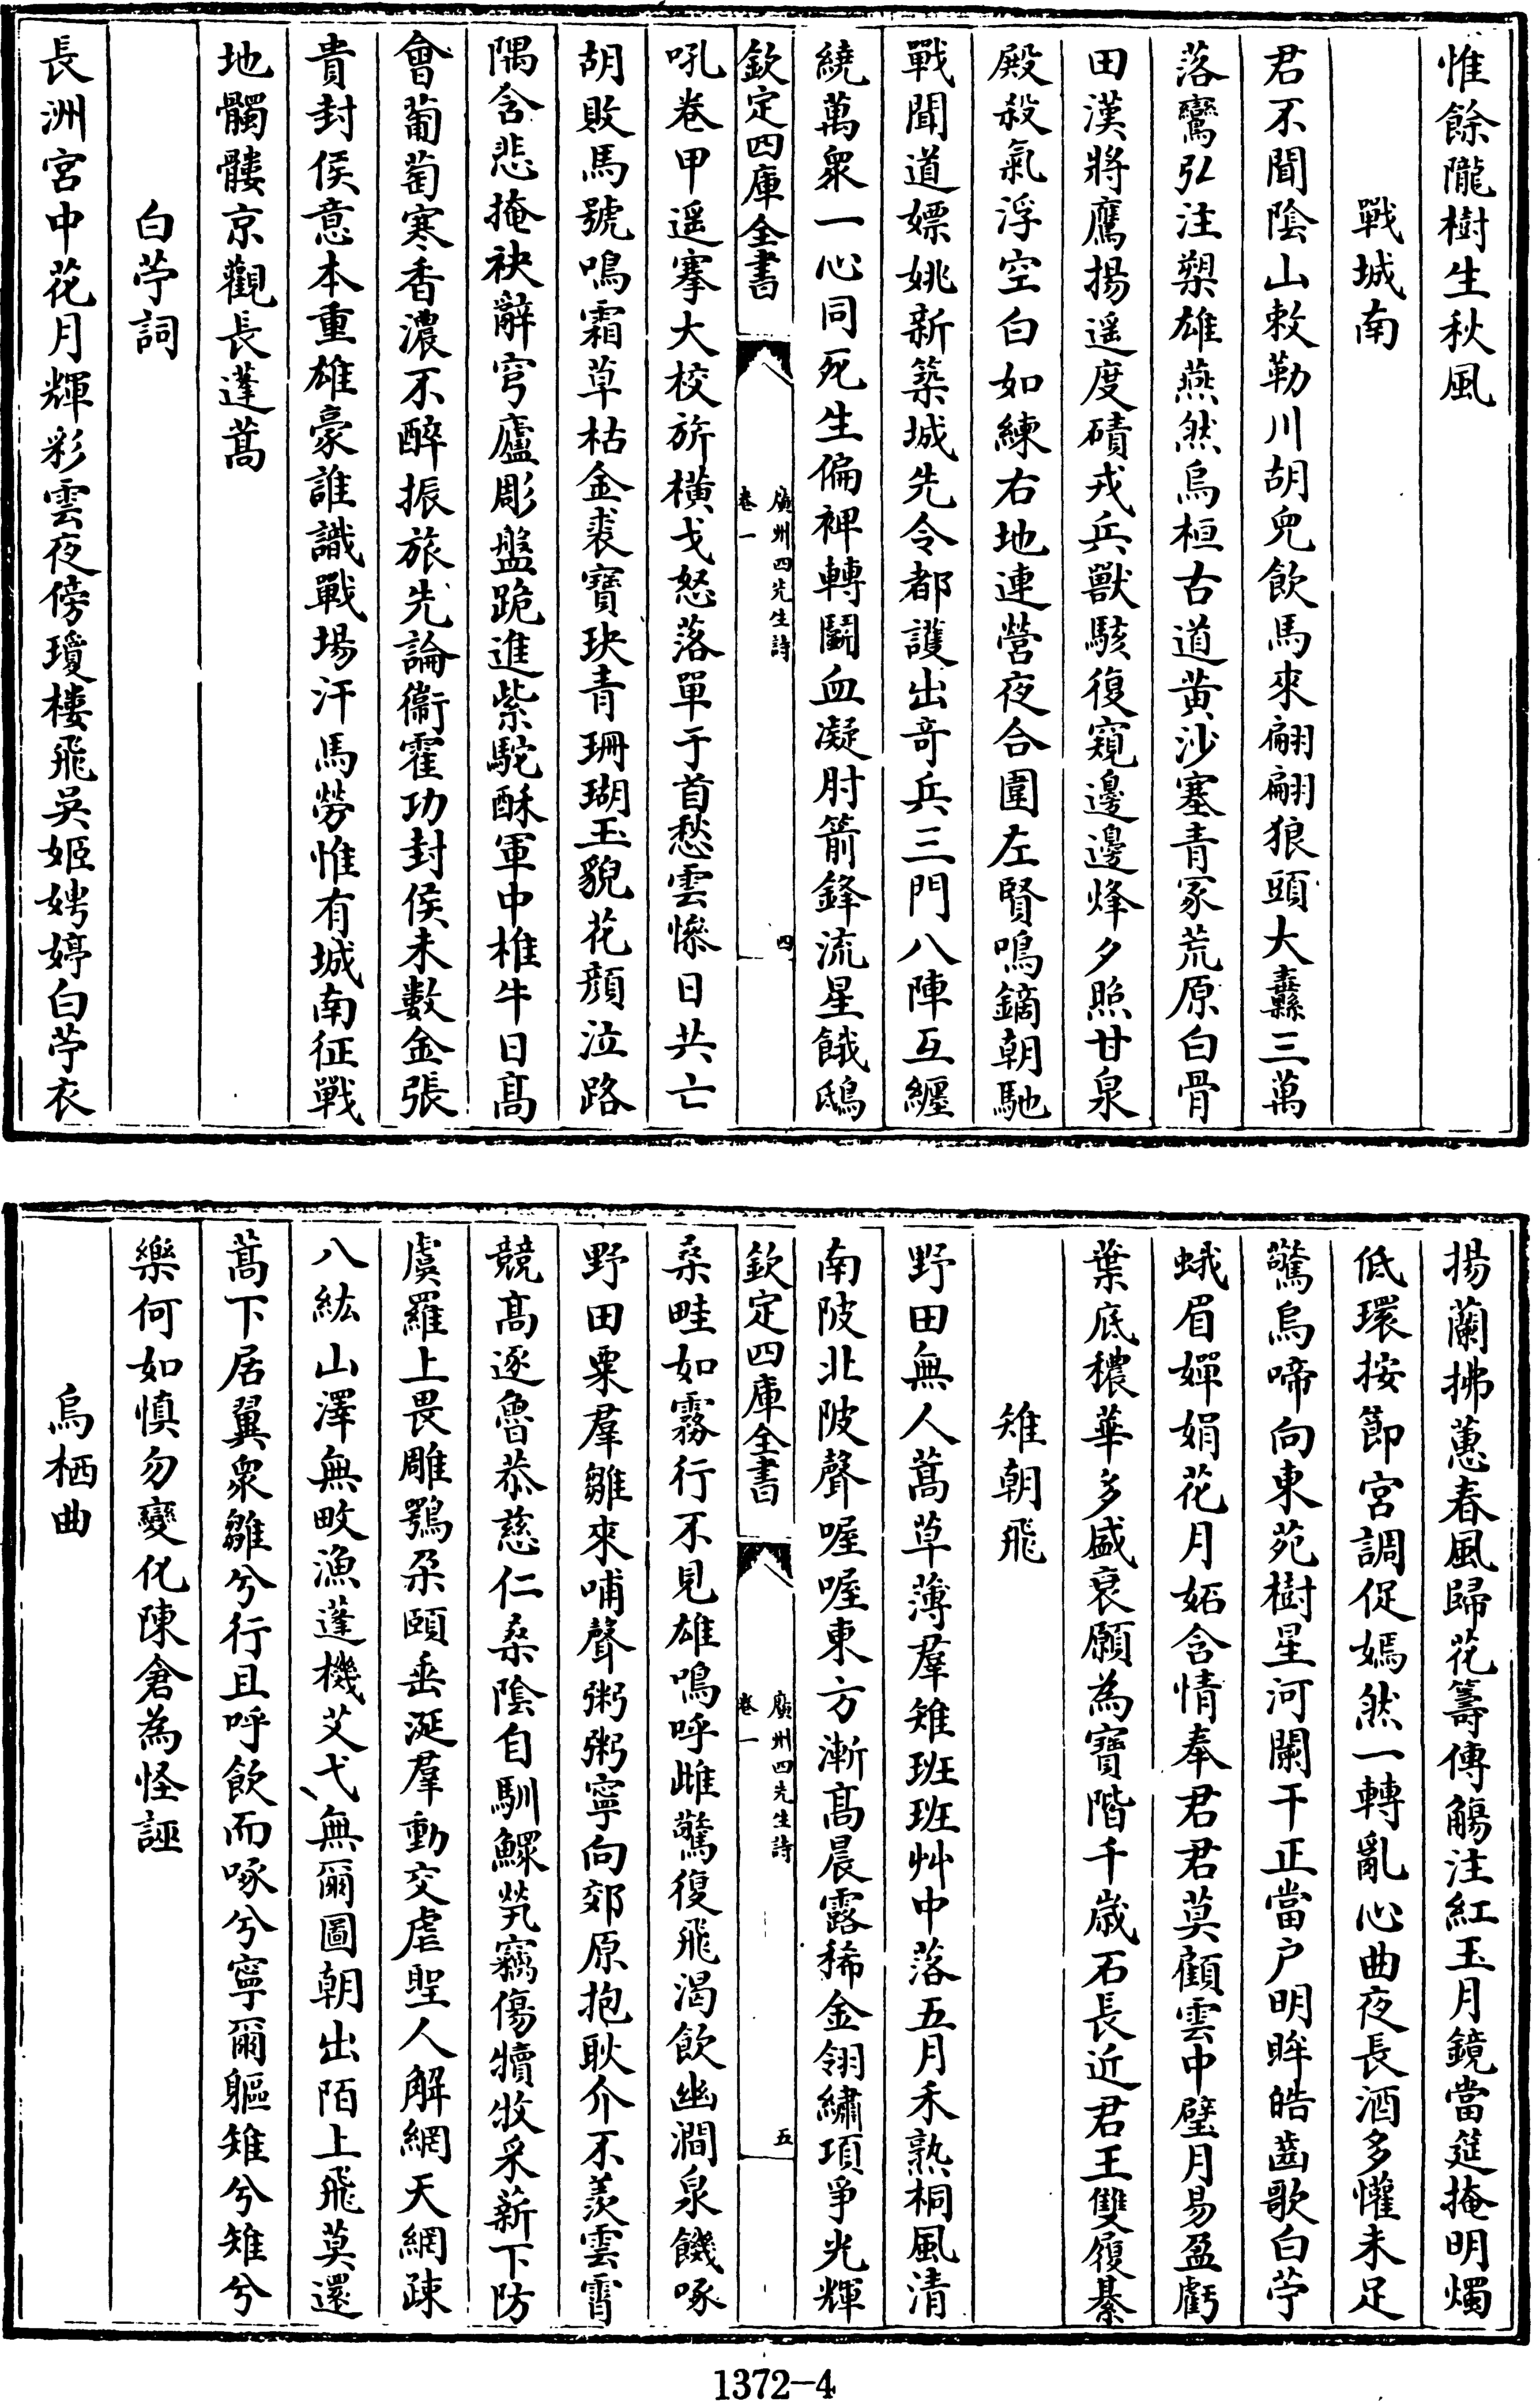 惟餘隴樹生秋風
戰城南
君不聞陰山敕勒川胡兒飲馬來翩翩狼頭大纛三萬
落鸞弘注槊雄燕然烏桓古道黄沙塞青冢荒原白骨
田漢將鷹揚遥度磧戎兵獸駭復窺邊邊烽夕照甘泉
殿殺氣浮空白如練右地連營夜合圍左賢鳴鏑朝馳
戰聞道嫖姚新築城先令都護出竒兵三門八陣互纏
繞萬衆一心同死生偏裨轉鬬血凝肘箭鋒流星餓鴟
欽定四庫全書
廣州四先生詩
卷一
四
吼卷甲遥搴大校旂横戈怒落單于首愁雲慘日共亡
胡敗馬號鳴霜草枯金裘寶玦青珊瑚玉貌花顔泣路
隅含悲掩袂辭穹廬彫盤跪進紫駝酥軍中椎牛日髙
會葡萄寒香濃不醉振旅先論衞霍功封侯未數金張
貴封侯意本重雄豪誰識戰場汗馬勞惟有城南征戰
地髑髏京觀長蓬蒿
白苧詞
長洲宫中花月輝彩雲夜傍瓊樓飛吳姬娉婷白苧衣
揚蘭拂蕙春風歸花籌傳觴注紅玉月鏡當筵掩明燭
低環按節宫調促嫣然一轉亂心曲夜長酒多懽未足
驚烏啼向東苑樹星河闌干正當户明眸皓齒歌白苧
蛾眉嬋娟花月妬含情奉君君莫顧雲中璧月易盈虧
葉底穠華多盛衰願為寶階千歳石長近君王雙履綦
雉朝飛
野田無人蒿草薄羣雉班班艸中落五月禾熟桐風清
南陂北陂聲喔喔東方漸髙晨露稀金翎繡項爭光輝
欽定四庫全書
廣州四先生詩
卷一
五
桑畦如霧行不見雄鳴呼雌驚復飛渴飲幽澗泉饑啄
野田粟羣雛來哺聲粥粥寧向郊原抱耿介不羨雲霄
競髙逐魯恭慈仁桑陰自馴鰥煢竊傷犢牧采薪下防
虞羅上畏雕鶚朶頤垂涎羣動交虐聖人解網天網疎
八紘山澤無畋漁蓬機艾弋無爾圖朝出陌上飛莫還
蒿下居翼衆雛兮行且呼飲而啄兮寧爾軀雉兮雉兮
樂何如慎勿變化陳倉為怪誣
烏栖曲
1372-4